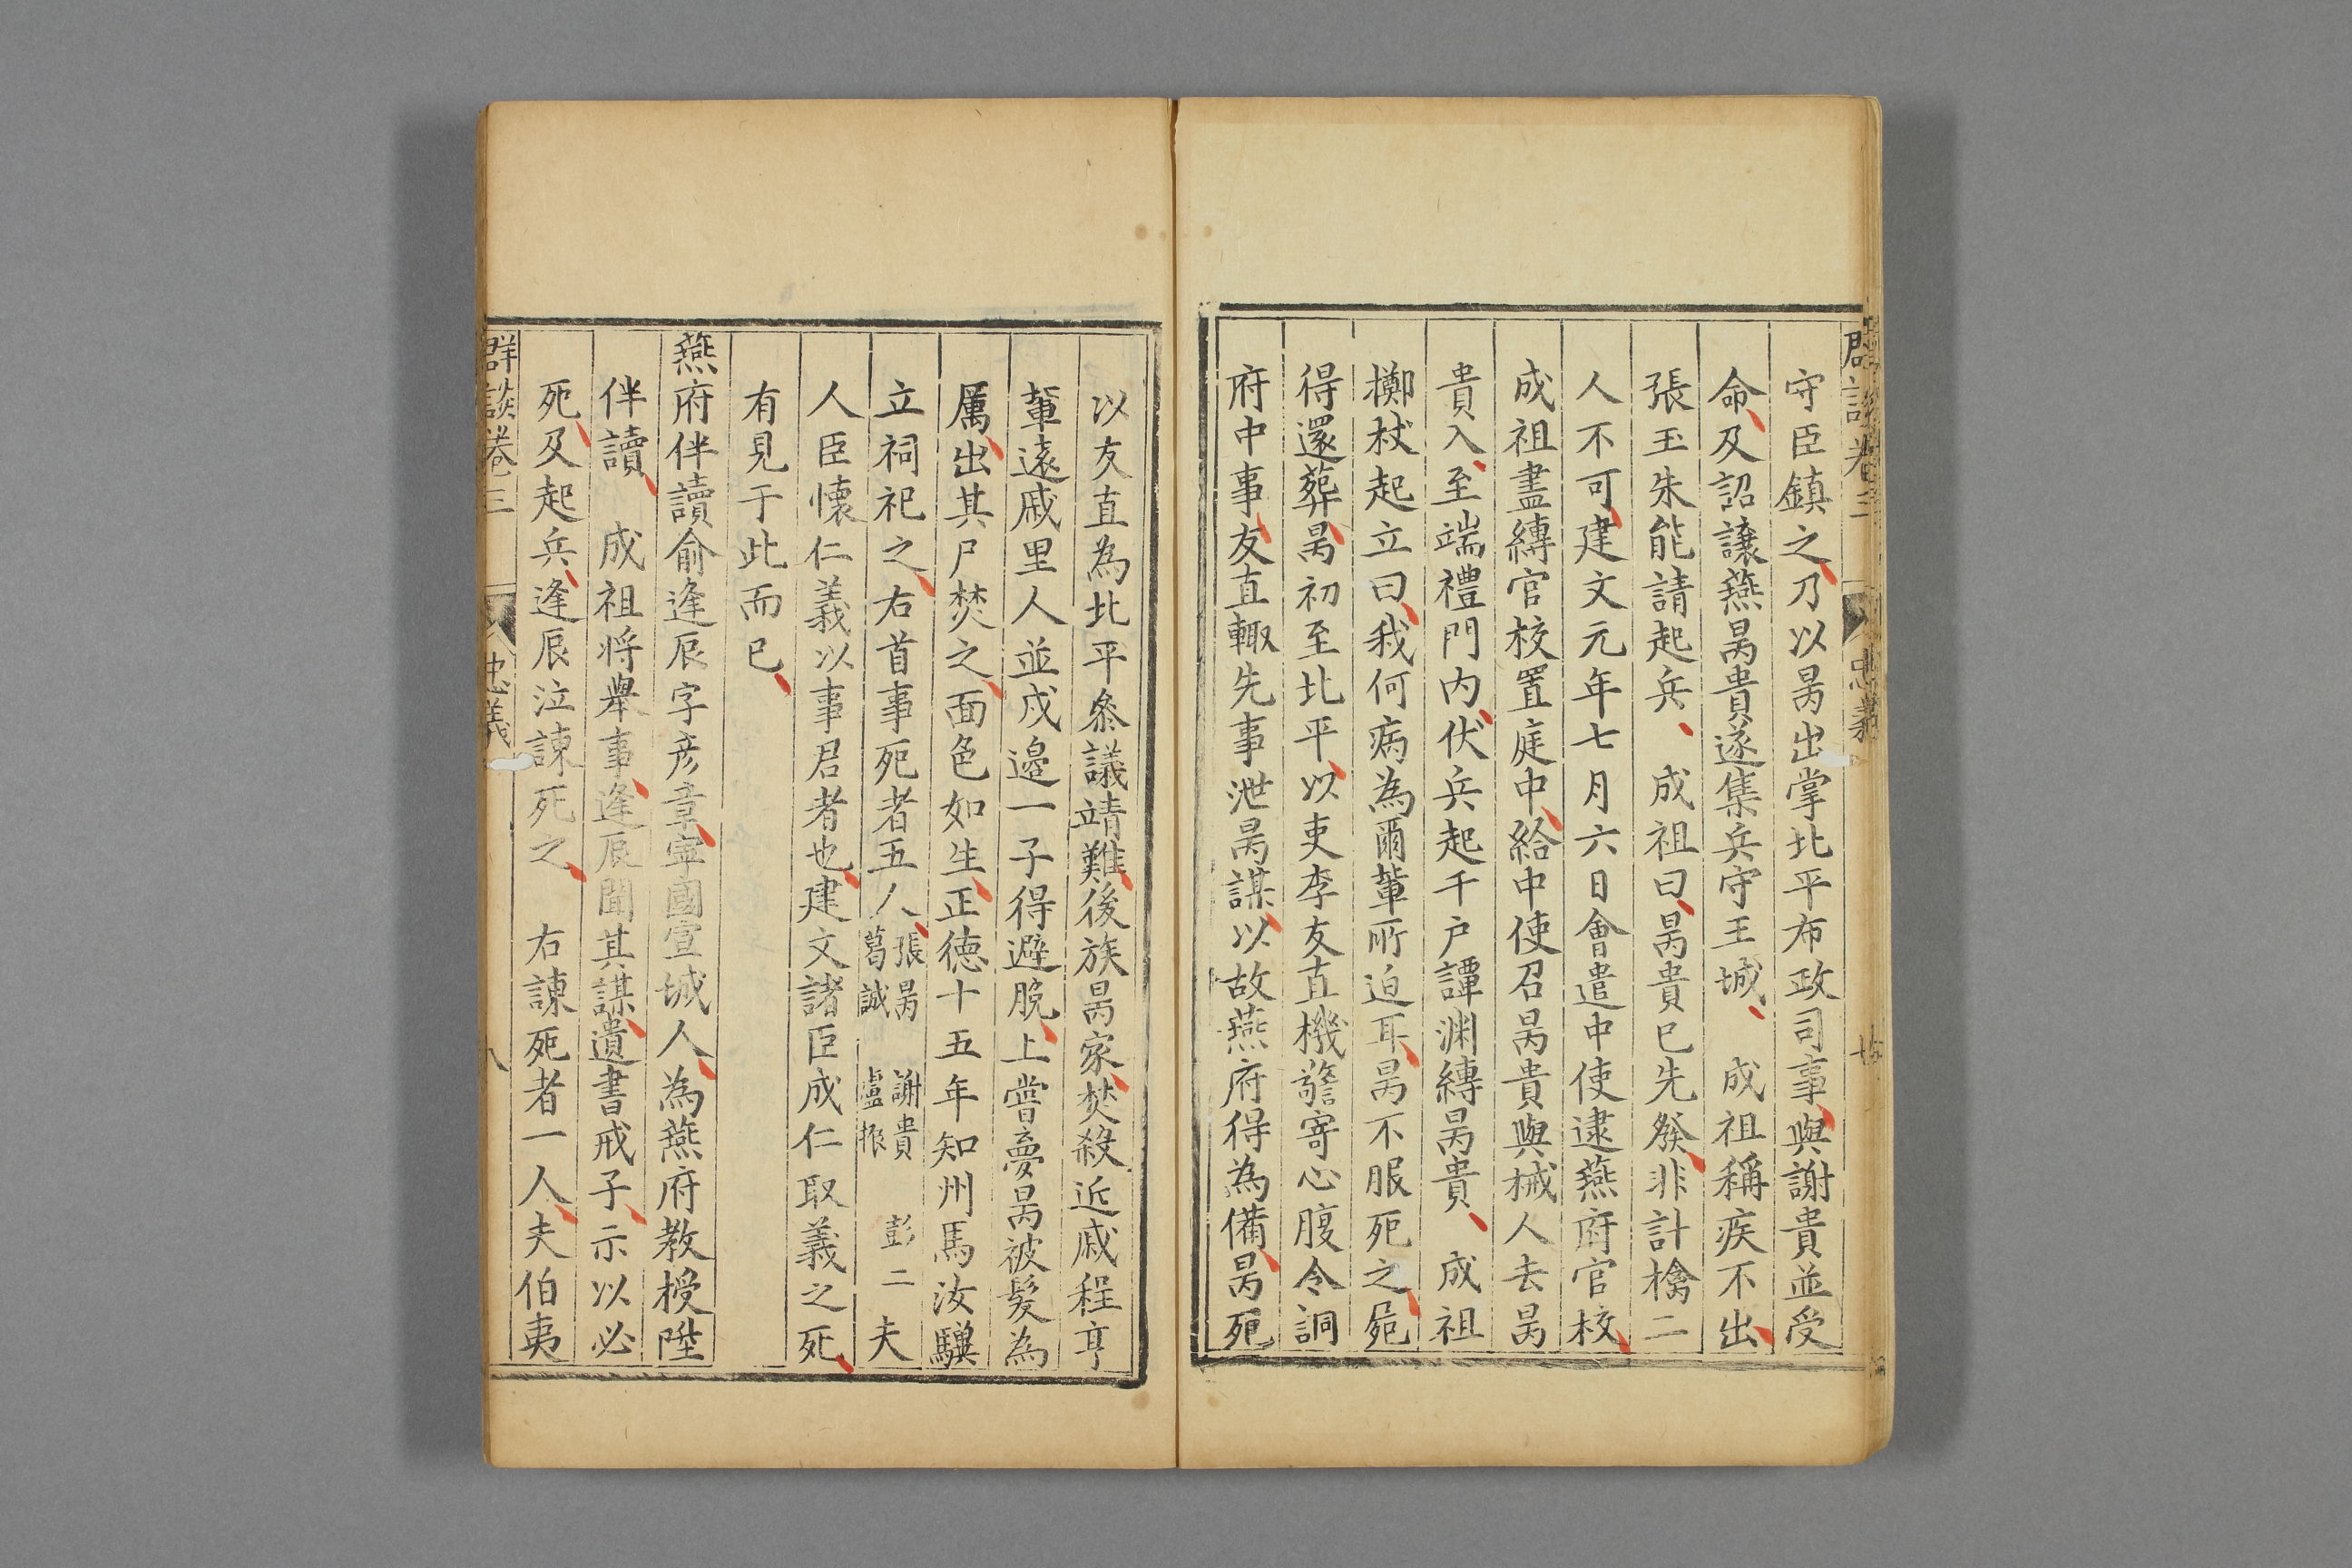 群談卷三
忠義
守臣鎮之乃以昺出掌北平布政司事與謝貴並受
命及詔讓燕昺貴遂集兵守王城　成祖稱疾不出
張玉朱能請起兵　成祖曰昺貴已先發非計擒二
人不可建文元年七月六日會遣中使逮燕府官校
成祖盡縛官校置庭中給中使召昺貴與械人去昺
貴入至端禮門內伏兵起千户譚淵縛昺貴　成祖
擲杖起立曰我何病為爾軰所迫耳昺不服死之屍
得還葬昺初至北平以吏李友直機警寄心腹令詗
府中事友直輙先事泄昺謀以故燕府得為備昺死
以友直為北平叅議靖難後族昺家焚殺近戚程亨
軰遠戚里人並戍邉一子得避脫上嘗夢昺被髮為
厲出其尸焚之面色如生正德十五年知州馬汝驥
立祠祀之右首事死者五人張昺　謝貴　彭二　葛誠　盧振　夫
人臣懷仁義以事君者也建文諸臣成仁取義之死
有見于此而已
燕府伴讀俞逢辰字彦章寧國宣城人為燕府教授陞
伴讀　成祖将舉事逢辰聞其謀遺書戒子示以必
死及起兵逢辰泣諫死之　右諫死者一人夫伯夷
群談卷三
忠義
八